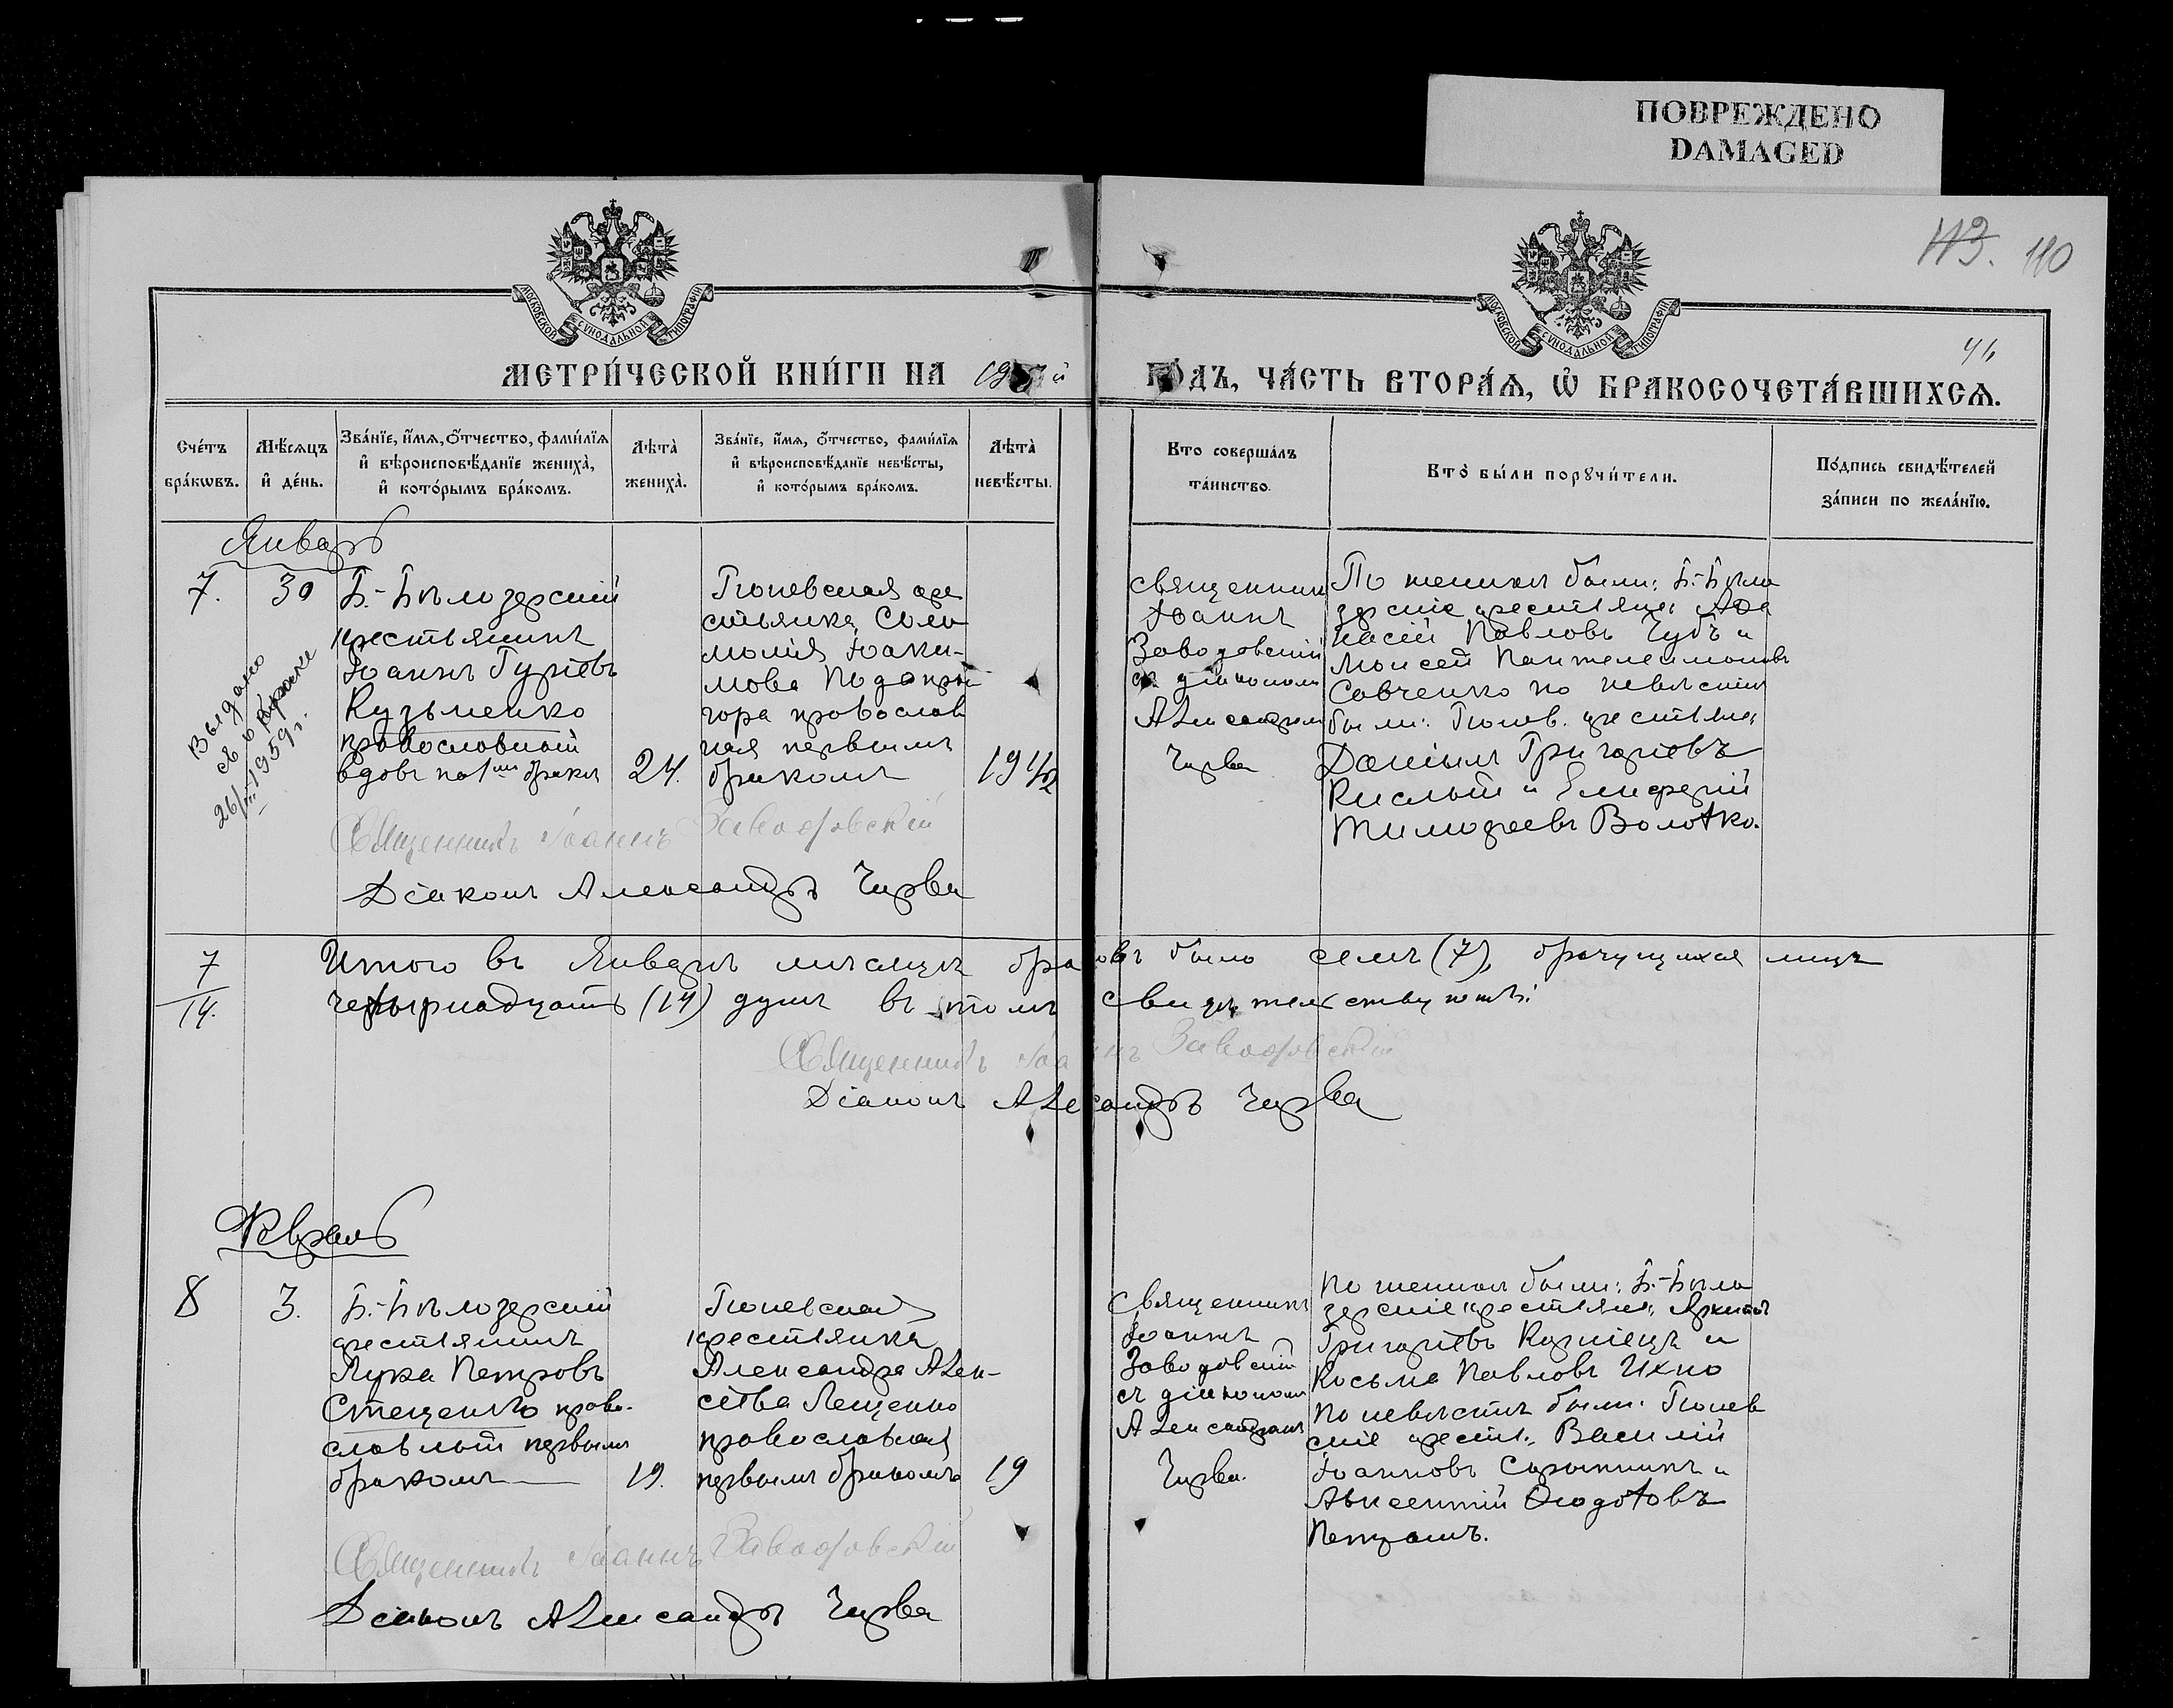 ПОВРЕЖДЕНО
DAMAGED
113. 110
МОСКОВСКОЙ СѴНОДАЛЬНОЙ ТИПОГРАФІИ
МОСКОВСКОЙ СѴНОДАЛЬНОЙ ТИПОГРАФІИ
МЕТРИ́ЧЕСКОЙ КНИ́ГИ НА 19 й ГО́ДЪ, ЧА́СТЬ ВТОРА́Я, Ѡ҆ БРАКОСОЧЕТА́ВШИХСЯ.
Сче́тъ
бра́кѡвъ.
Мѣ́сяцъ
и҆ де́нь.
Зва́нїе, и҆́мя, ѻ҆́тчество, фами́лїя
и҆ вѣроисповѣ́данїе жениха̀,
и҆ кото́рымъ бра́комъ.
Лѣта̀
жениха̀.
Зва́нїе, и҆́мя, ѻ҆́тчество, фами́лїя
и҆ вѣроисповѣ́данїе невѣ́сты,
и҆ кото́рымъ бра́комъ.
Лѣта̀
невѣ́сты.
Кто соверша́лъ
та́инство.
Кто̀ бы́ли порꙋчи́тели.
По́дпись свидѣ́телей
за́писи по жела́нїю.
Январь
7.
30
Выдано
св о браке
26/III 1959 г.
Б.-Бѣлозерскій
крестьянинъ
Іоаннъ Гуріевъ
Кузьменко
православный
вдовъ по 1мъ бракѣ
24.
кре
стьянка Соло
монія Іоаки-
мова Подопри
гора православ
ная первымъ
бракомъ
19 1/2
Священникъ
Іоаннъ
Заводовскій
съ діакономъ
Александромъ
Чирва
По женихѣ были: Б.-Бѣло
зерскіе крестьяне: Афа
насій Павловъ Чубъ и
Моисей Пантелеимоновъ
Савченко по невѣстѣ
были: крестьяне
Даніилъ Григоріевъ
Кислый и Елиферій
Тимофеевъ Волотко.
Священникъ Іоаннъ Заводовскій
Діаконъ Александръ Чирва
7
14.
Итого въ Январѣ мѣсяцѣ браковъ было семь (7), брачущихся лицъ
четырнадцать (14) душъ въ томъ свидѣтельствуютъ:
Священникъ Іоаннъ Заводовскій
Діаконъ Александръ Чирва
Февраль
8
3.
Б.-Бѣлозерскій
крестьянинъ
Лука Петровъ
Стеценко право-
славный первымъ
бракомъ
19.
крестьянка
Александра Алек-
сѣева Лещенко
православная
первымъ бракомъ
19
Священникъ
Іоаннъ
Заводовскій
съ діакономъ
Александромъ
Чирва.
По женихѣ были: Б.-Бѣло
зерскіе крестьяне:
Григоріевъ и
Косьма Павловъ Ихно
По невѣстѣ были:
крест.: Василій
Іоанновъ Скрынникъ и
Авксентій Феодотовъ
Петрашъ.
Священникъ Іоаннъ Заводовскій
Діаконъ Александръ Чирва